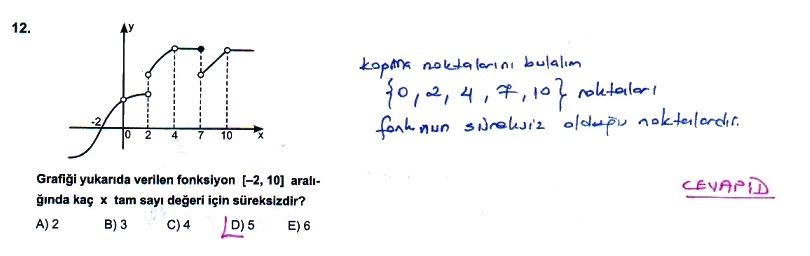 12.
y
-2
0 2 4 7 10 x
Grafiği yukarıda verilen fonksiyon [–2, 10] aralı-
ğında kaç x tam sayı değeri için süreksizdir?
A) 2 B) 3 C) 4 D) 5 E) 6
kopma noktalarını bulalım
{0, 2, 4, 7, 10} noktaları
fonk nun süreksiz olduğu noktalardır.
CEVAP D